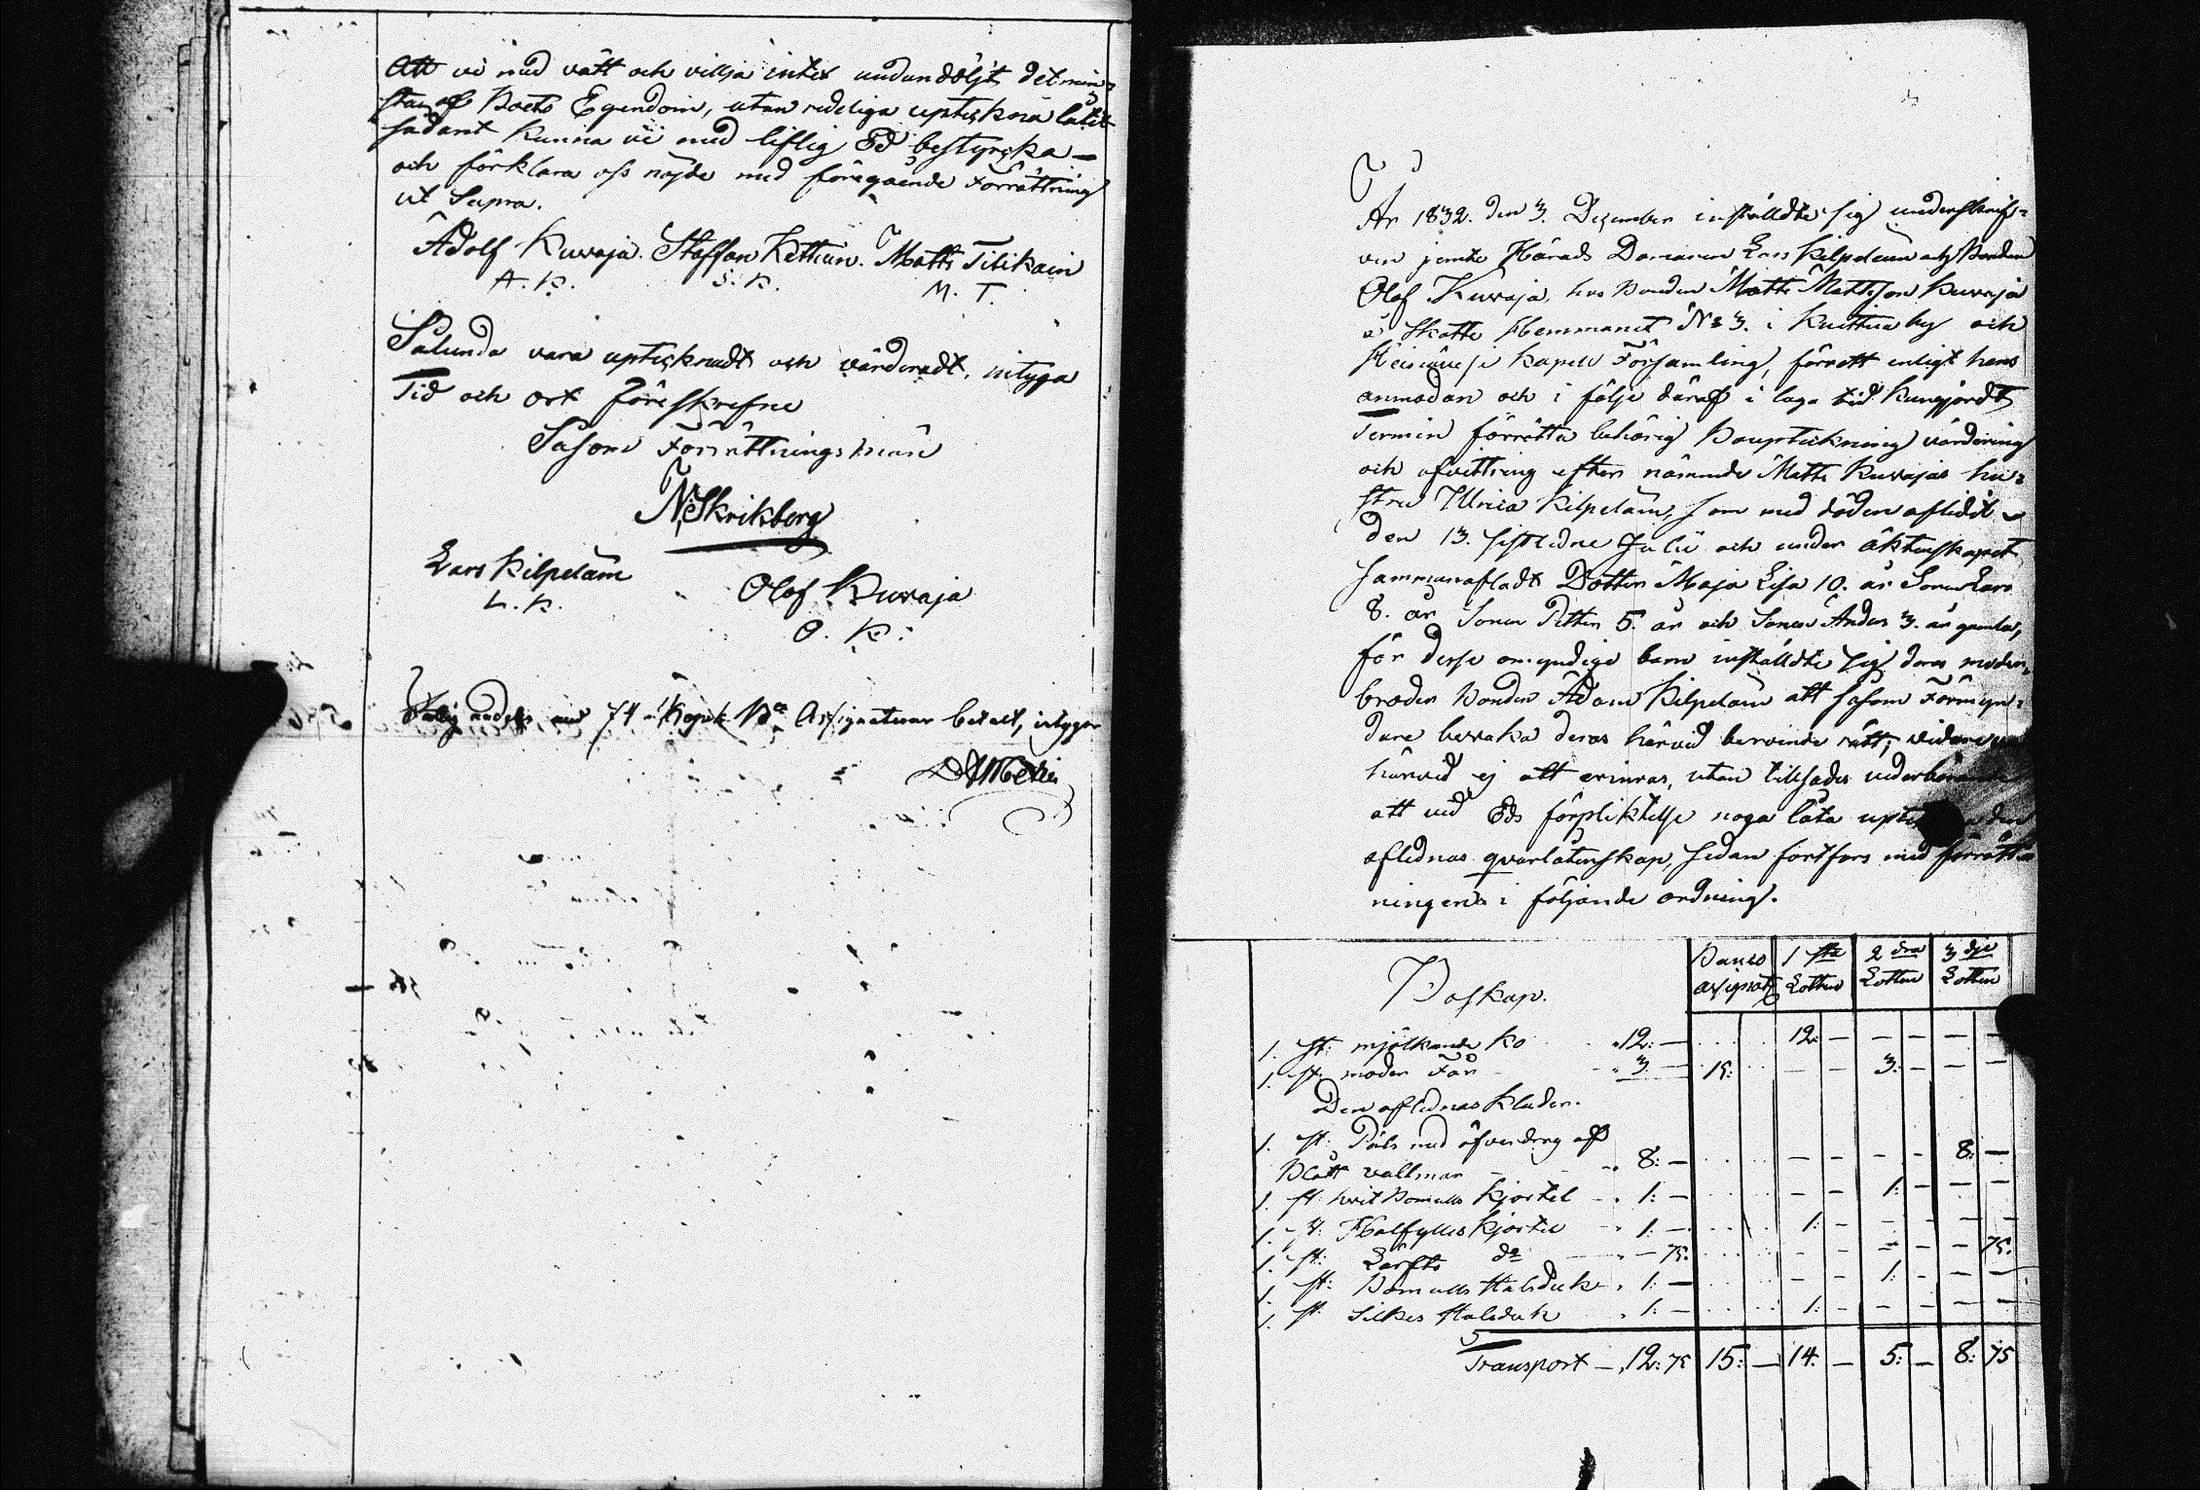 Att vi med vått och villja intet undandöljt det min=
sta af Boets Egendom, utan redeliga uptekna låtit
sådant kunna vi med liflig Ed bestyrcka —
och förklara oss nöjde med föregående Förrättning
ut Supra.
Adolf Kuvaja. Staffan Kettun. Matts Tilikain
A. K. S. K. M. T.
Sålunda vara upteknadt och värderadt, intyga
Tid och ort föreskrefne
Såsom Förrättningsmän
N: Skrikberg
Lars Kilpeläin Olof Kuvaja
L. K. O. K:
Fattig andelen med 74 Kopek Bco Assignationer betalt, intygar
År 1832. den 3. December instälde sig underskrif=
ven jemte Härads Domaren Lars Kilpeläin och Bonden
Olof Kuvaja, hos Bonden Matts Mattsson Kuvaja
å Skatte Hemmanet No 3. i Knittila by och
Kapell Församling, förrätt enligt hans
anmodan och i följe däraf i laga tid kungjordt
Termin förrätta behörig Bouptekning värdering
och afvittring efter nämnde Matts Kuvajas hu=
stru Ulrica Kilpeläin, som med döden aflidit
den 13. sistledne Julii och under äktenskapet
sammanafladt Dottren Maja Lisa 10. år Sonen Lars
8. år Sonen Petter 5. år och Sonen Anders 3. år gamla,
för desse omyndige barn instälde sig deras moder=
broder Bonden Adam Kilpeläin att såsom Förmyn=
dare bevaka deras härvid berörende rätt; vidare
härvid ej att erinras, utan tillsades vederbörande
att vid Eds förpliktelse noga låta den
aflednas qvarlåtenskap, sedan fortfors med förrätt
ningen i följande ordning.
Boskap. Banco assignat 1 sta Lotten 2 dra Lotten 3 dje Lotten
1. st: mjölkande ko 12: — 12: — — — — —
1. st: moder Får 3 — 15: — — 3: — — —
Den aflednas Kläder.
1. st: Päls med öfverdrag af
Blått vallmar 8: — — — — — 8: —
1. st: hvit Bomulls Kjortel 1: — — — 1: — — —
1. st: Halfylles Kjortel 1: — 1: — — — — —
1. st: Lärfts do — 75. — — — — — 75.
1. st: Bomulls Halsduk 1: — — — 1: — — —
1. st: Silkes Halsduk 1: — 1: — — — — —
Transport — 12: 75 15: — 14. — 5: — 8: 75